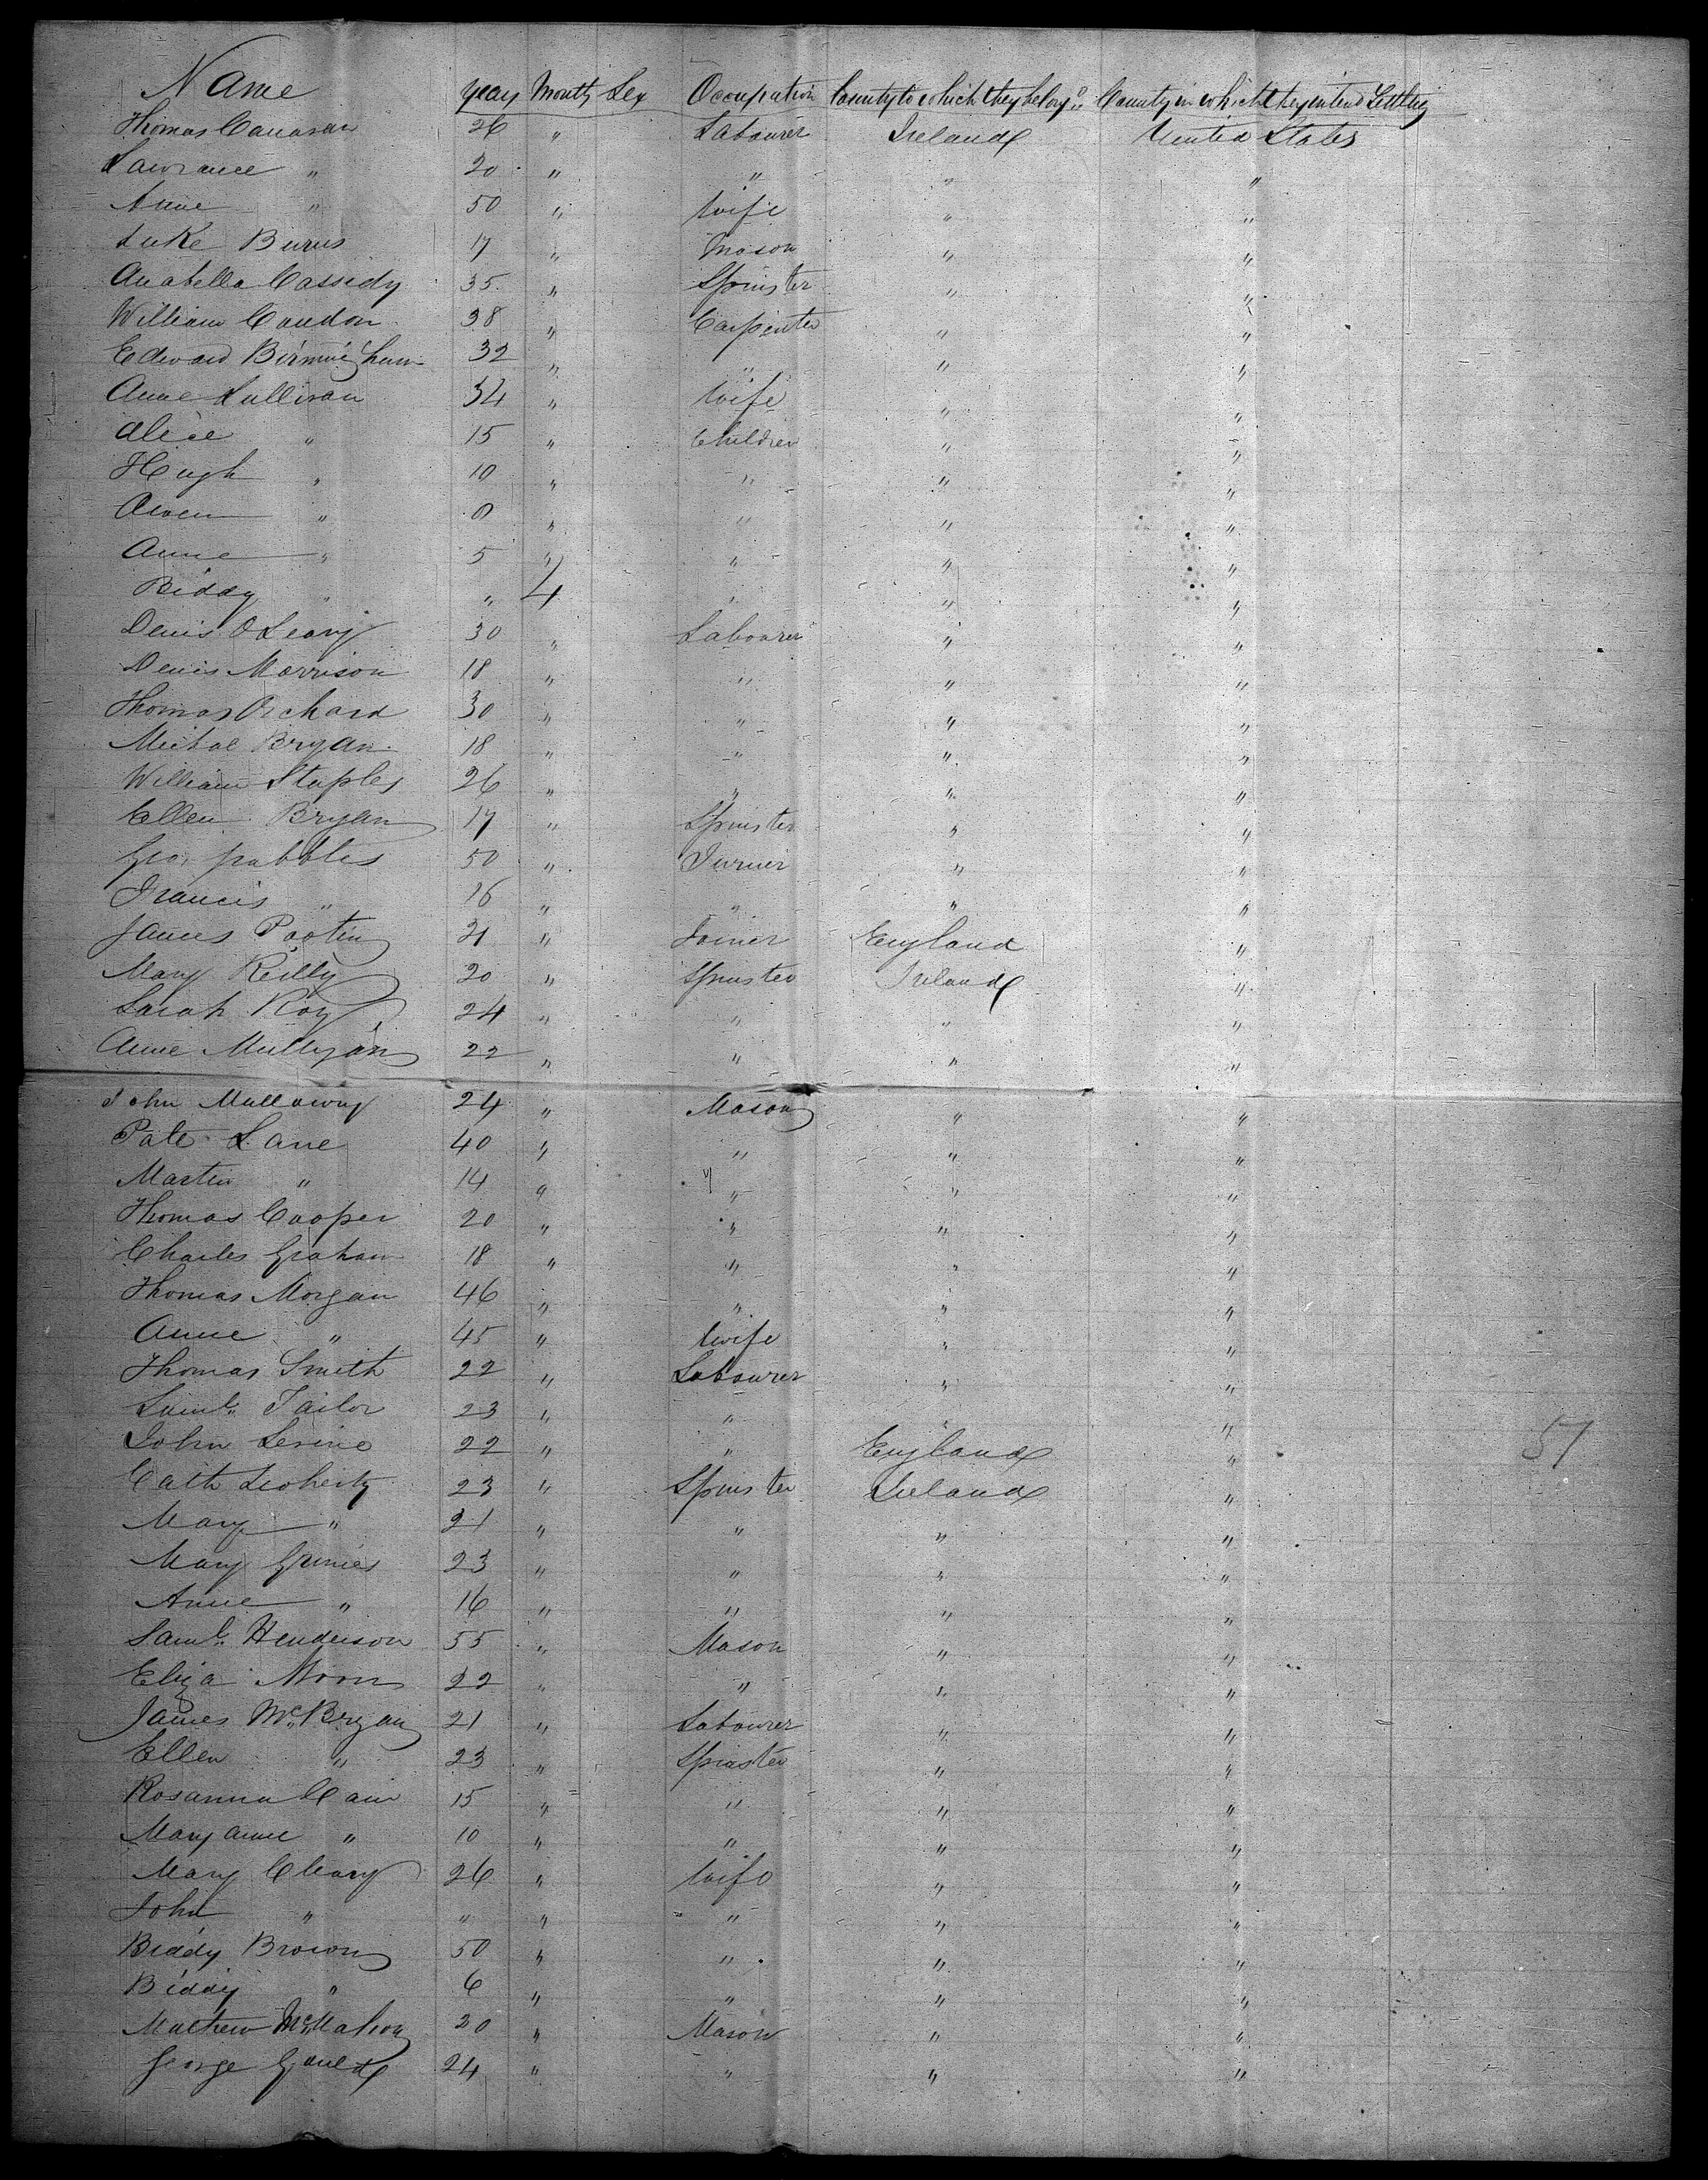 Name years Month Sex Occupation County to which they belong County in which they intend Settling
Thomas Canavan 26 " Labourer Ireland United States
Lawrance " 20 " " " "
Anne " 50 " Wife " "
Luke Burns 17 " Mason " "
Anabella Cassidy 35 " Spinster " "
William Condon 38 " Carpenter " "
Edward Birmingham 32 " " " "
Anne Sullivan 34 " Wife " "
Alice " 15 " Children " "
Hugh " 10 " " " "
Owen " " " " "
Anne " 5 " " " "
Biddy " " 4 " " "
Denis O Leary 30 " Labourer " "
Denis Morrison 18 " " " "
Thomas Orchard 30 " " " "
Michal Bryan 18 " " " "
William Staples 26 " " " "
Ellen Bryan 17 " Spinster " "
Geo. pabbles 50 " Turner " "
Francis " 16 " " " "
James 21 " Joiner England "
Mary Reilly 20 " Spinster Ireland "
Sarah Roy 24 " " " "
Anne Mulligan 22 " " " "
John Mullowny 24 " Mason " "
Pate Lane 40 " " " "
Martin " 14 " " " "
Thomas Cooper 20 " " " "
Charles Graham 18 " " " "
Thomas Morgan 46 " " " "
Anne " 45 " Wife " "
Thomas Smith 22 " Labourer " "
Saml. Tailor 23 " " " "
John Levine 22 " " England "
57
Cath Doherty 23 " Spinster Ireland "
Mary " 21 " " " "
Mary Grimes 23 " " " "
Anne " 16 " " " "
Saml. Henderson 55 " Mason " "
Eliza Moon 22 " " " "
James McBryan 21 " Labourer " "
Ellen " 23 " Spinster " "
Rosanna Cain 15 " " " "
Mary anne " 10 " " " "
Mary Cleary 26 " Wife " "
John " " " " " "
Biddy Brown 50 " " " "
Biddy " 6 " " " "
Mathew McMahon 20 " Mason " "
George Gould 24 " " " "